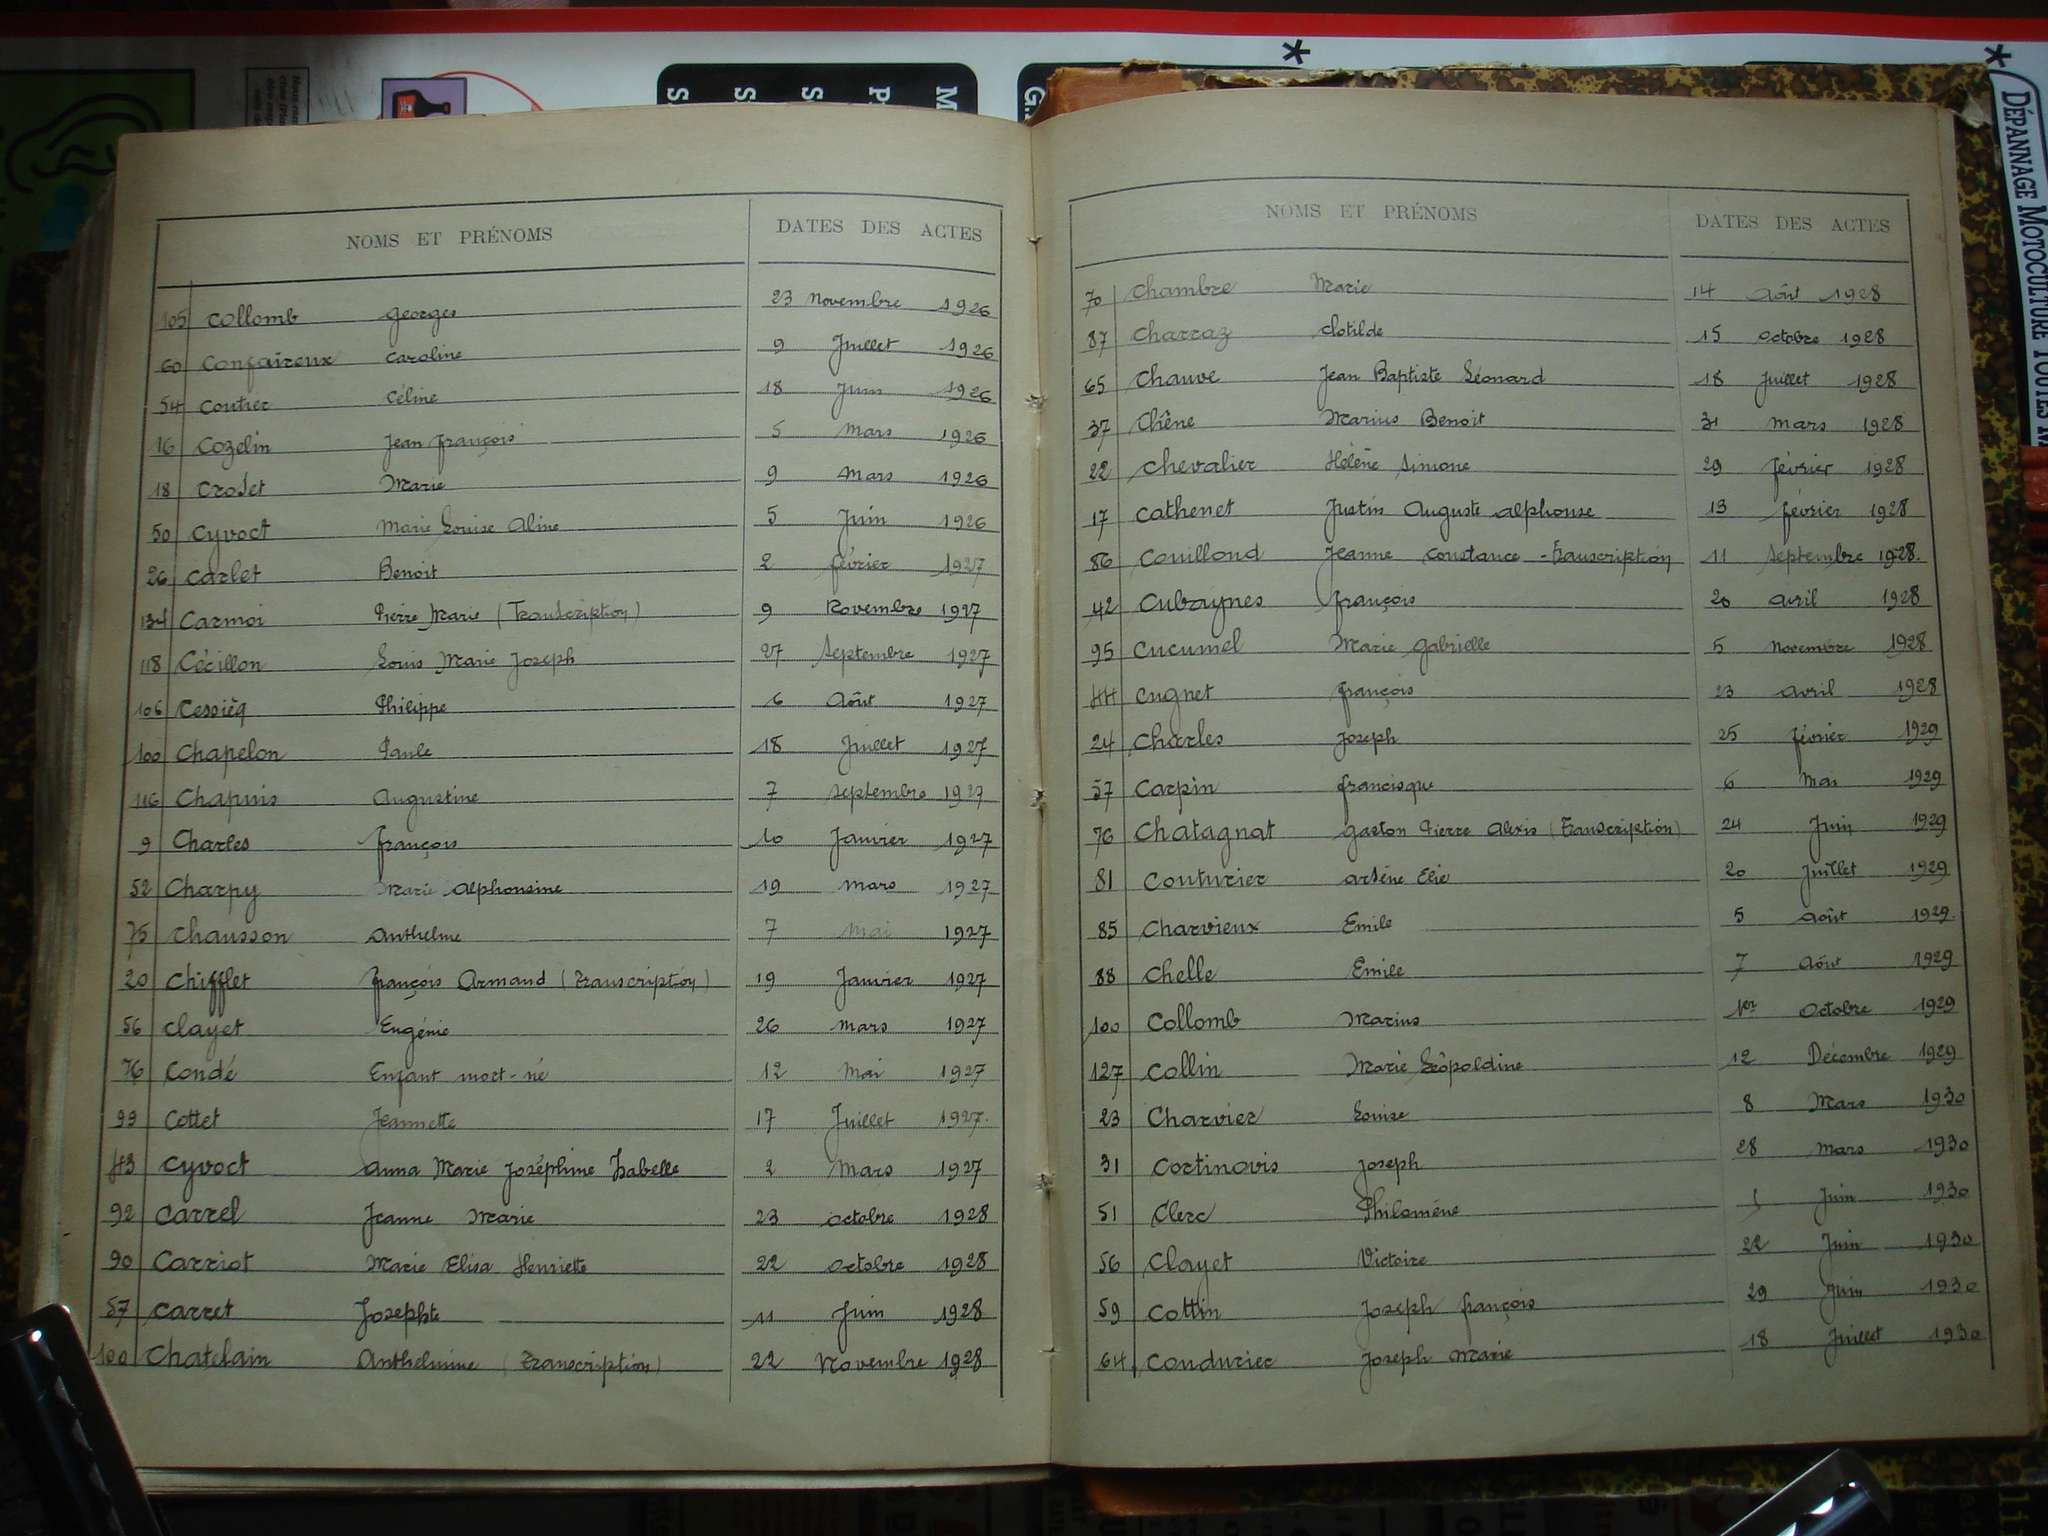 DÉPANNAGE MOTOCULTURE TOUTES M
NOMS ET PRÉNOMS DATES DES ACTES
105 Collomb Georges 23 Novembre 1926
60 Confaireux Caroline 9 Juillet 1926
54 Coutier Céline 18 Juin 1926
16 Cozelin Jean François 5 Mars 1926
18 Croset Marie 9 Mars 1926
50 Cyvoct Marie Louise Aline 5 Juin 1926
26 Carlet Benoit 2 Février 1927
134 Carmoi Pierre Marie (Transcription) 9 Novembre 1927
118 Cécillon Louis Marie Joseph 27 Septembre 1927
106 Cessiéq Philippe 6 Août 1927
100 Chapelon Paule 18 Juillet 1927
116 Chapuis Augustine 7 Septembre 1927
9 Charles François 10 Janvier 1927
52 Charpy Marie Alphonsine 19 Mars 1927
75 Chausson Anthelme 7 Mai 1927
20 Chifflet François Armand (Transcription) 19 Janvier 1927
56 Clayet Eugénie 26 Mars 1927
76 Condé Enfant mort-né 12 Mai 1927
99 Cottet Jeannette 17 Juillet 1927.
43 Cyvoct Anna Marie Joséphine Isabelle 2 Mars 1927
92 Carrel Jeanne Marie 23 Octobre 1928
90 Carriot Marie Elisa Henriette 22 Octobre 1928
57 Carret Josephte 11 Juin 1928
100 Chatelain Anthelmine (Transcription) 22 Novembre 1928
NOMS ET PRÉNOMS DATES DES ACTES
70 Chambre Marie 14 Août 1928
87 Charraz Clotilde 15 Octobre 1928
65 Chauve Jean Baptiste Léonard 18 Juillet 1928
37 Chêne Marius Benoit 31 Mars 1928
22 Chevalier Hélène Simone 29 Février 1928
17 Cathenet Justin Auguste Alphonse 13 Février 1928
86 Couillond Jeanne Constance - Transcription 11 Septembre 1928.
42 Cubaynes François 20 Avril 1928
95 Cucumel Marie Gabrielle 5 Novembre 1928
44 Cugnet François 23 Avril 1928
24 Charles Joseph 25 Février 1929
57 Carpin Francisque 6 Mai 1929
76 Chatagnat Gaston Pierre Alexis (Transcription) 24 Juin 1929
81 Couturier Arsène Elie 20 Juillet 1929
85 Charvieux Emile 5 Août 1929.
88 Chelle Emile 7 Août 1929
100 Collomb Marius 1er Octobre 1929
127 Collin Marie Léopoldine 12 Décembre 1929
23 Charvier Louise 8 Mars 1930
31 Cortinovis Joseph 28 Mars 1930
51 Clerc Philomène Juin 1930
56 Clayet Victoire 22 Juin 1930
59 Cottin Joseph François 29 Juin 1930
64 Condurier Joseph Marie 18 Juillet 1930